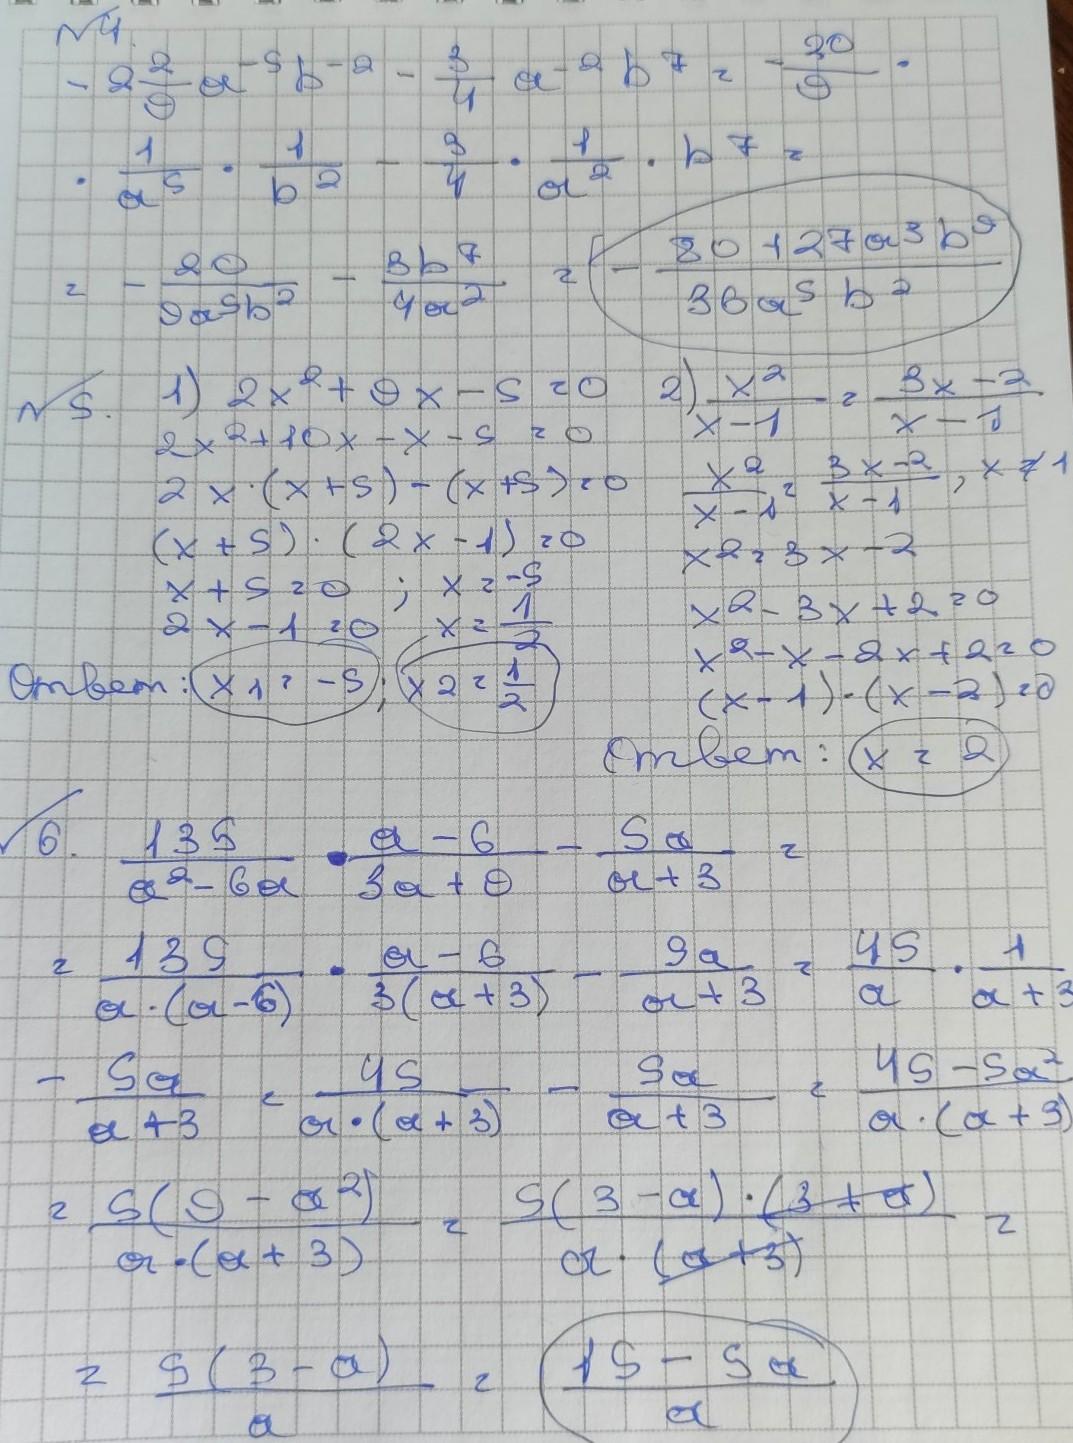 №4.
-2 2/9 a^-5 b^-2 - 3/4 a^-2 b^7 = -20/9 ·
· 1/a^5 · 1/b^2 - 3/4 · 1/a^2 · b^7 =
= -20/(9a^5b^2) - 3b^7/(4a^2) = -(80+27a^3b^9)/(36a^5b^2)
№5. 1) 2x^2+9x-5=0
2x^2+10x-x-5=0
2x·(x+5)-(x+5)=0
(x+5)·(2x-1)=0
x+5=0 ; x=-5
2x-1=0 x=1/2
Ответ: x1=-5; x2=1/2
2) x^2/(x-1) = (3x-2)/(x-1)
x^2/(x-1) = (3x-2)/(x-1), x≠1
x^2=3x-2
x^2-3x+2=0
x^2-x-2x+2=0
(x-1)·(x-2)=0
Ответ: x=2
6. 135/(a^2-6a) · (a-6)/(3a+9) - 5a/(a+3) =
= 135/(a·(a-6)) · (a-6)/(3(a+3)) - 5a/(a+3) = 45/a · 1/(a+3)
- 5a/(a+3) = 45/(a·(a+3)) - 5a/(a+3) = (45-5a^2)/(a·(a+3))
= 5(9-a^2)/(a·(a+3)) = 5(3-a)·(3+a)/(a·(a+3)) =
= 5(3-a)/a = (15-5a)/a